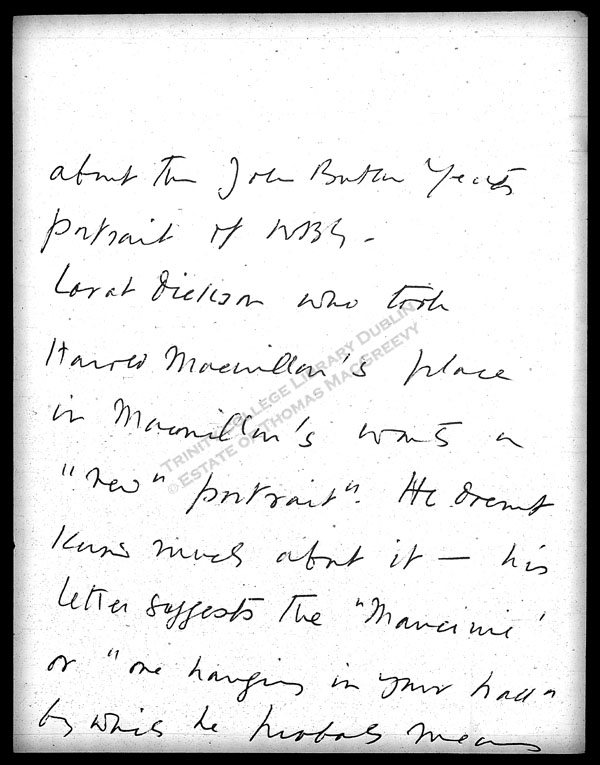 about the John Butler Yeats
portrait of WBY -
Lovat Dickson who took
Harold Macmillan's place
in Macmillan's wants a
"new" portrait". He doesn't
know much about it — his
letter suggests the "Mancini'
or "one hanging in your hall"
by which he probably means
TRINITY COLLEGE LIBRARY DUBLIN
© ESTATE OF THOMAS MACGREEVY